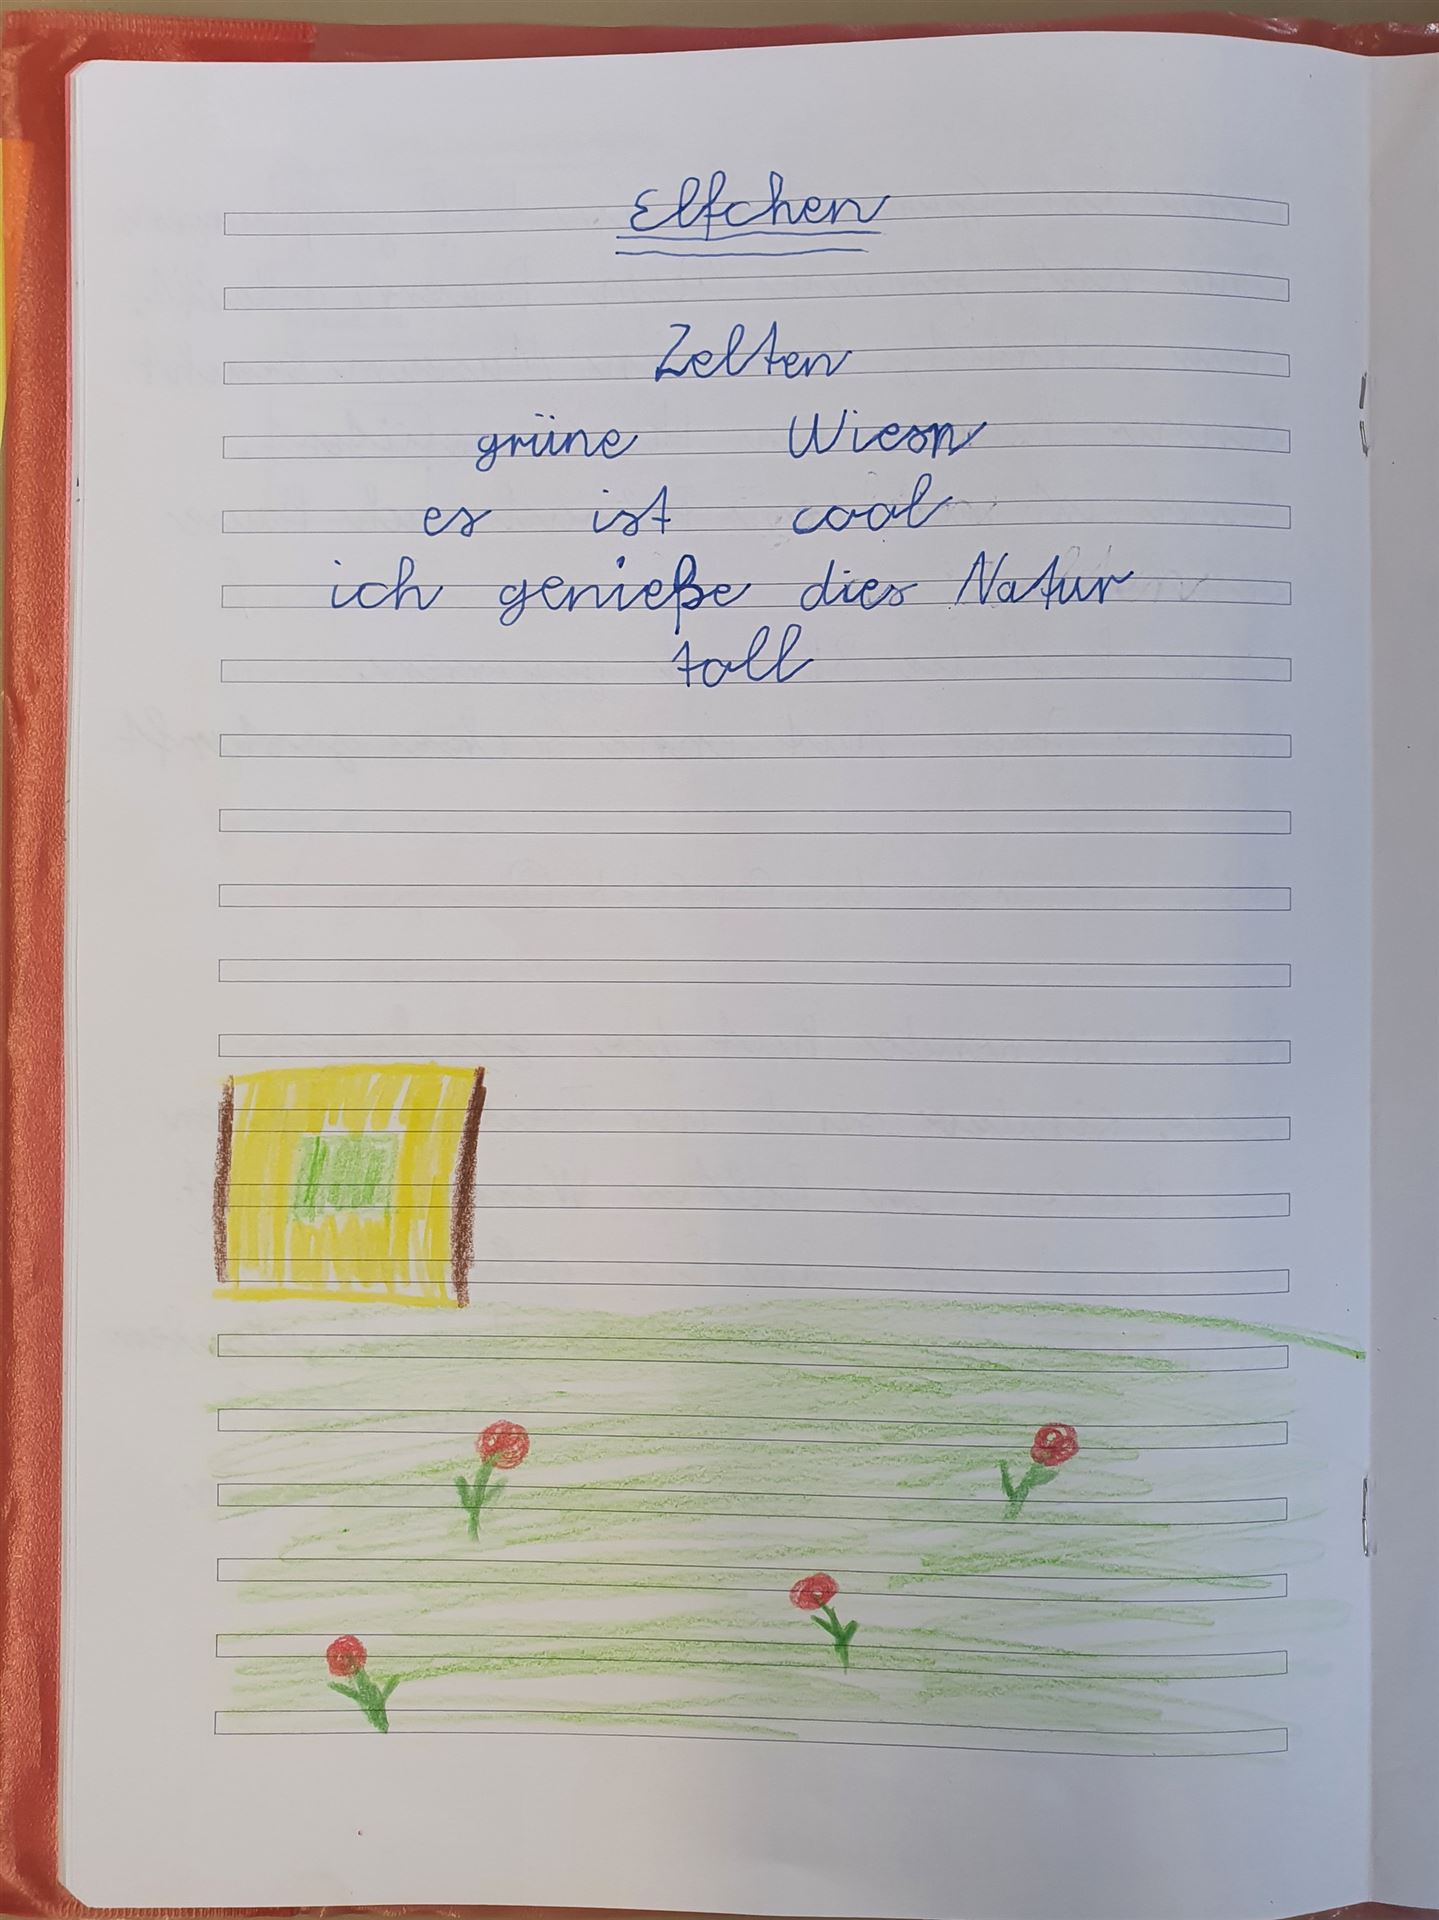 Elfchen
Zelten
grüne Wiesn
es ist cool
ich genieße dies Natur
toll